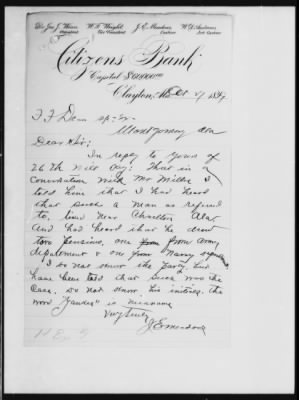 Dr. Jas. J. Winn, W. H. Wright, J. E. Meadows, W. D. Andrews,
President Vice President Cashier Ast. Cashier
Citizens Bank
Capital $60000.00
Clayton, Ala. 27 189
T F Dean
Montgomery Ala
Dear Sir:
In reply to yours of
26th will say: That in a
Conversation with Mr Miller I
told him that I had heard
that such a man as refered
to, lived near Ala
and had heard that he drew
two pensions, one from from army
department & one from Navy
I do not know the party, but
have been told that such was the
case. Do not know his initials. The
word "Yankee" is
Very Truly
J E Meadows